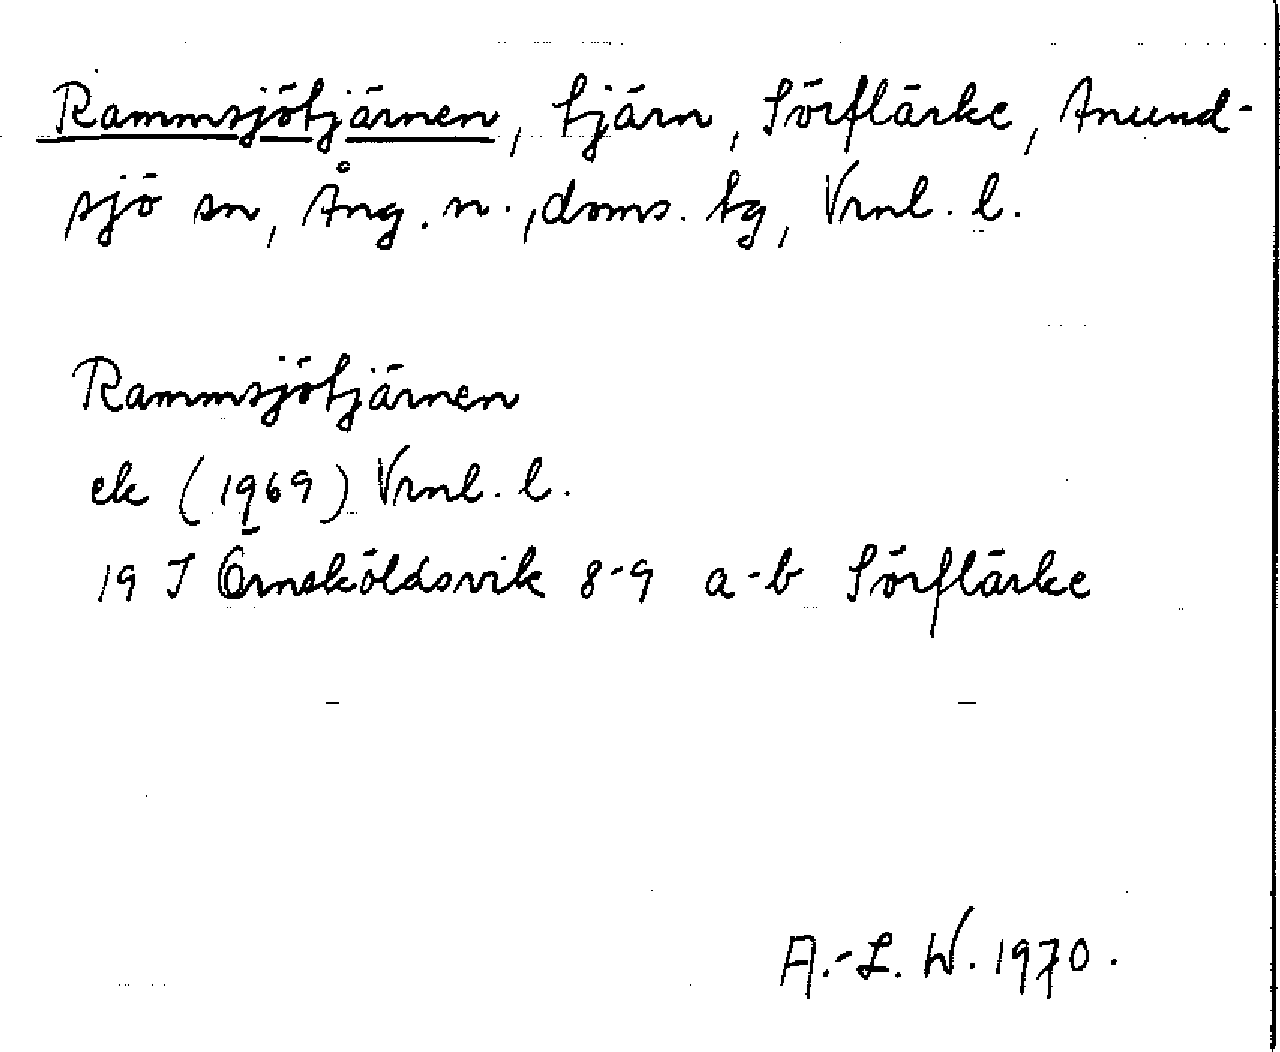 Rammsjötjärnen, tjärn, Sörflärke, Anund-
sjö sn, Ång. n., doms. tg, Vrnl. l.
Rammsjötjärnen
ek (1969) Vrnl. l.
19 J Örnsköldsvik 8-9 a-b Sörflärke
A.-L. W. 1970.